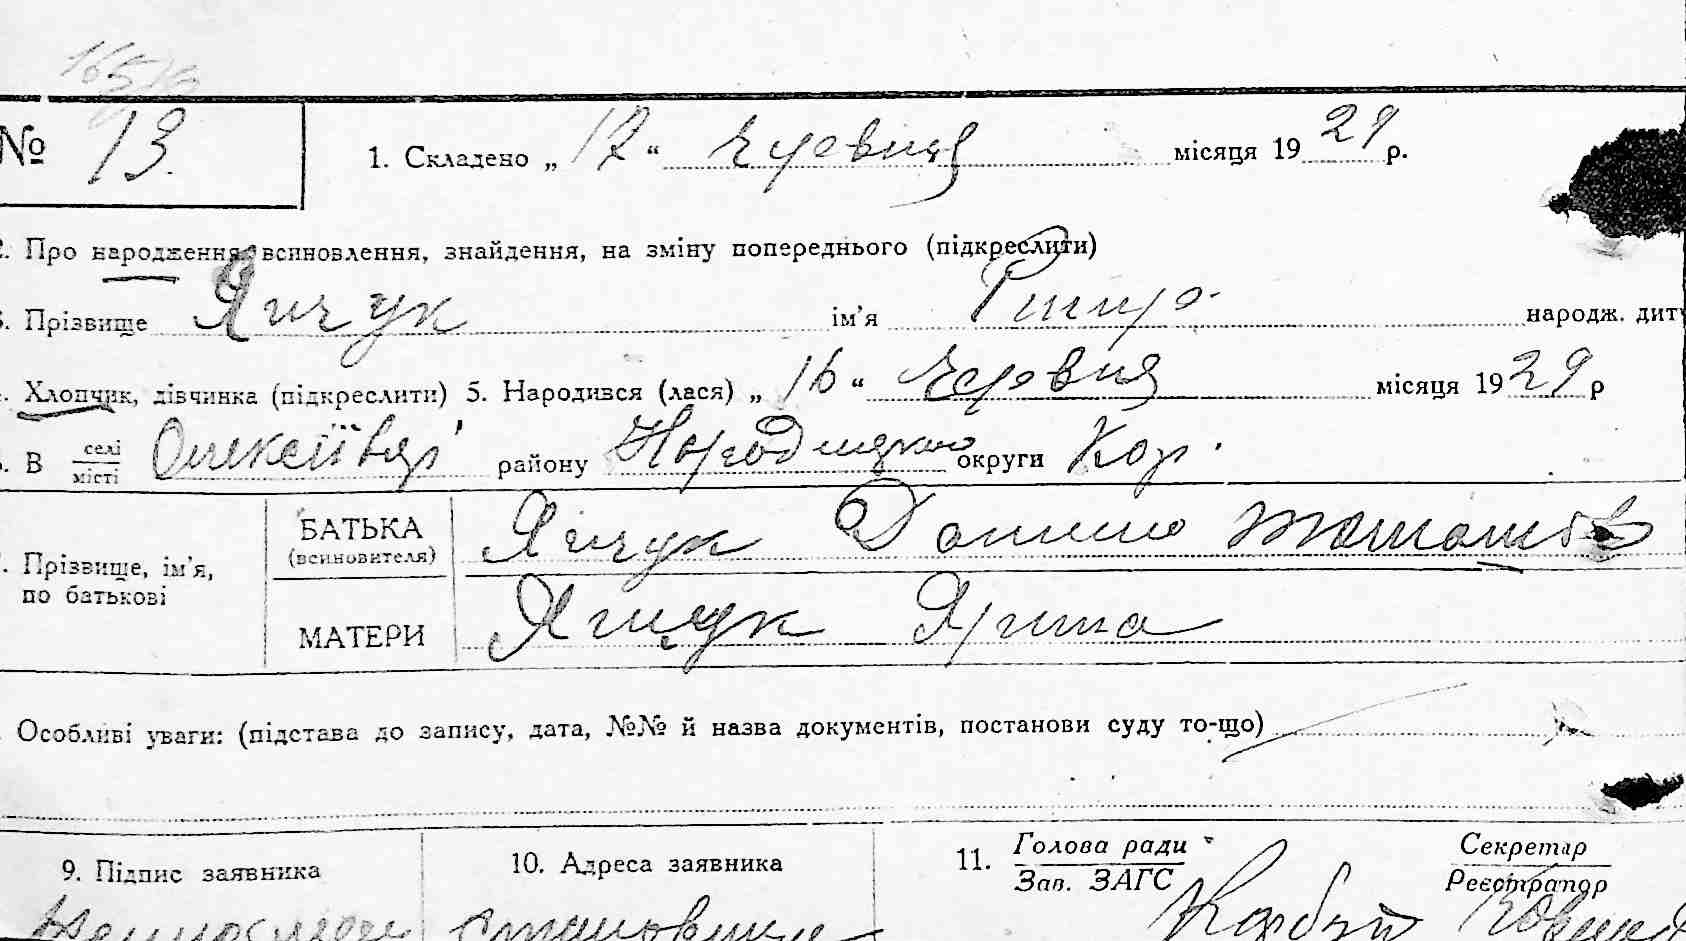 № 13. 1. Складено „ 17 “ червня місяця 1929 р.
Про народження, всиновлення, знайдення, на зміну попереднього (підкреслити)
Прізвище Янчук ім’я народж. дит
Хлопчик, дівчинка (підкреслити) 5. Народився (лася) „ 16 “ червня місяця 1929 р
В селі місті району Народицького округи Кор.
Прізвище, ім’я, по батькові
БАТЬКА (всиновителя) Янчук Данило
МАТЕРИ Янчук Ярина
Особливі уваги: (підстава до запису, дата, №№ й назва документів, постанови суду то-що)
9. Підпис заявника 10. Адреса заявника 11. Голова ради Зав. ЗАГС Секретар Реєстратор